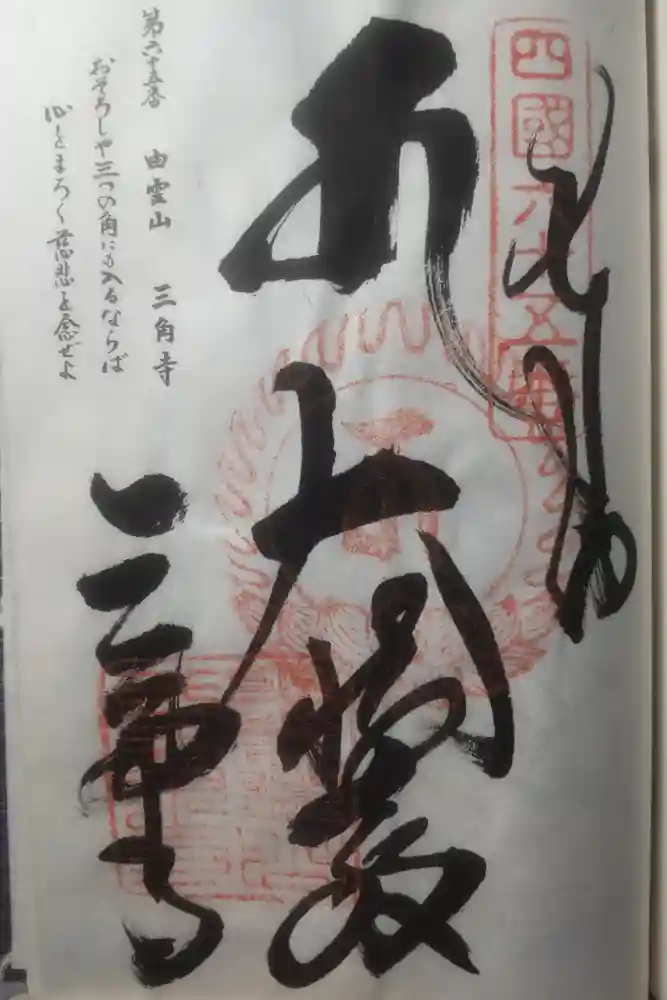 四國六十五番
奉納
三角寺
第六十五番 由霊山 三角寺
おそろしや三つの角にも入るならば
心をまろく慈悲を念ぜよ